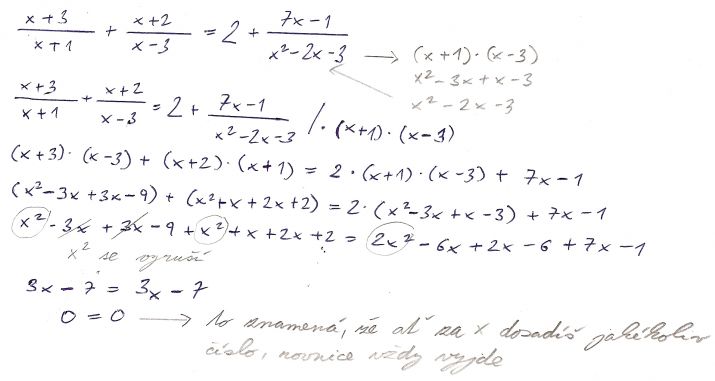 (x+3)/(x+1) + (x+2)/(x-3) = 2 + (7x-1)/(x²-2x-3) → (x+1)·(x-3)
x²-3x+x-3
x²-2x-3
(x+3)/(x+1) + (x+2)/(x-3) = 2 + (7x-1)/(x²-2x-3) /·(x+1)·(x-3)
(x+3)·(x-3) + (x+2)·(x+1) = 2·(x+1)·(x-3) + 7x-1
(x²-3x+3x-9) + (x²+x+2x+2) = 2·(x²-3x+x-3) + 7x-1
x²-3x+3x-9+x²+x+2x+2 = 2x²-6x+2x-6+7x-1
x² se vyruší
3x-7 = 3x-7
0 = 0 → to znamená, že ať za x dosadíš jakékoliv
číslo, rovnice vždy vyjde